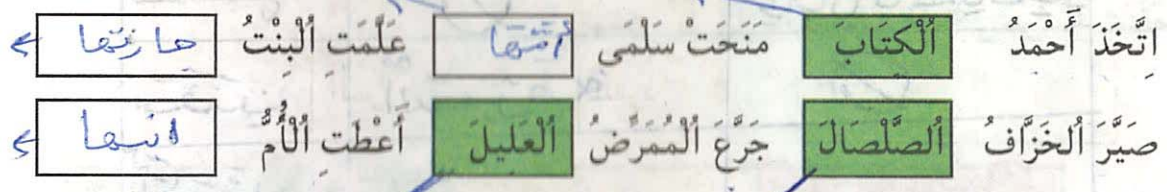 اِتَّخَذَ أَحْمَدُ اُلْكِتَابَ مَنَحَتْ سَلْمَى أمّها عَلَّمَتِ اُلْبِنْتُ جارتها
صَيَّرَ اُلخَزَّافُ اُلصَّلْصَالَ جَرَّعَ اُلْمُمَرِّضُ اُلْعَلِيلَ أَعْطَتِ اُلْأُمُّ ابنها